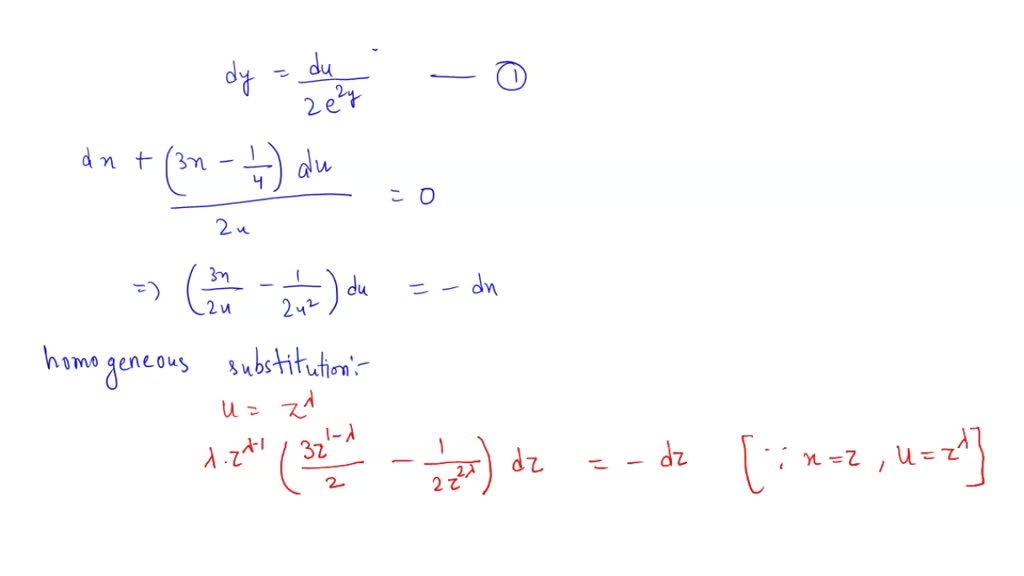 dy = du / 2e^{2y} — ①
dn + (3n - 1/4) du / 2u = 0
=> (3n/2u - 1/2u²) du = - dn
homogeneous substitution:-
u = z^λ
λ·z^{λ-1} (3z^{1-λ}/2 - 1/2z^{2λ}) dz = - dz [∵ n = z, u = z^λ]